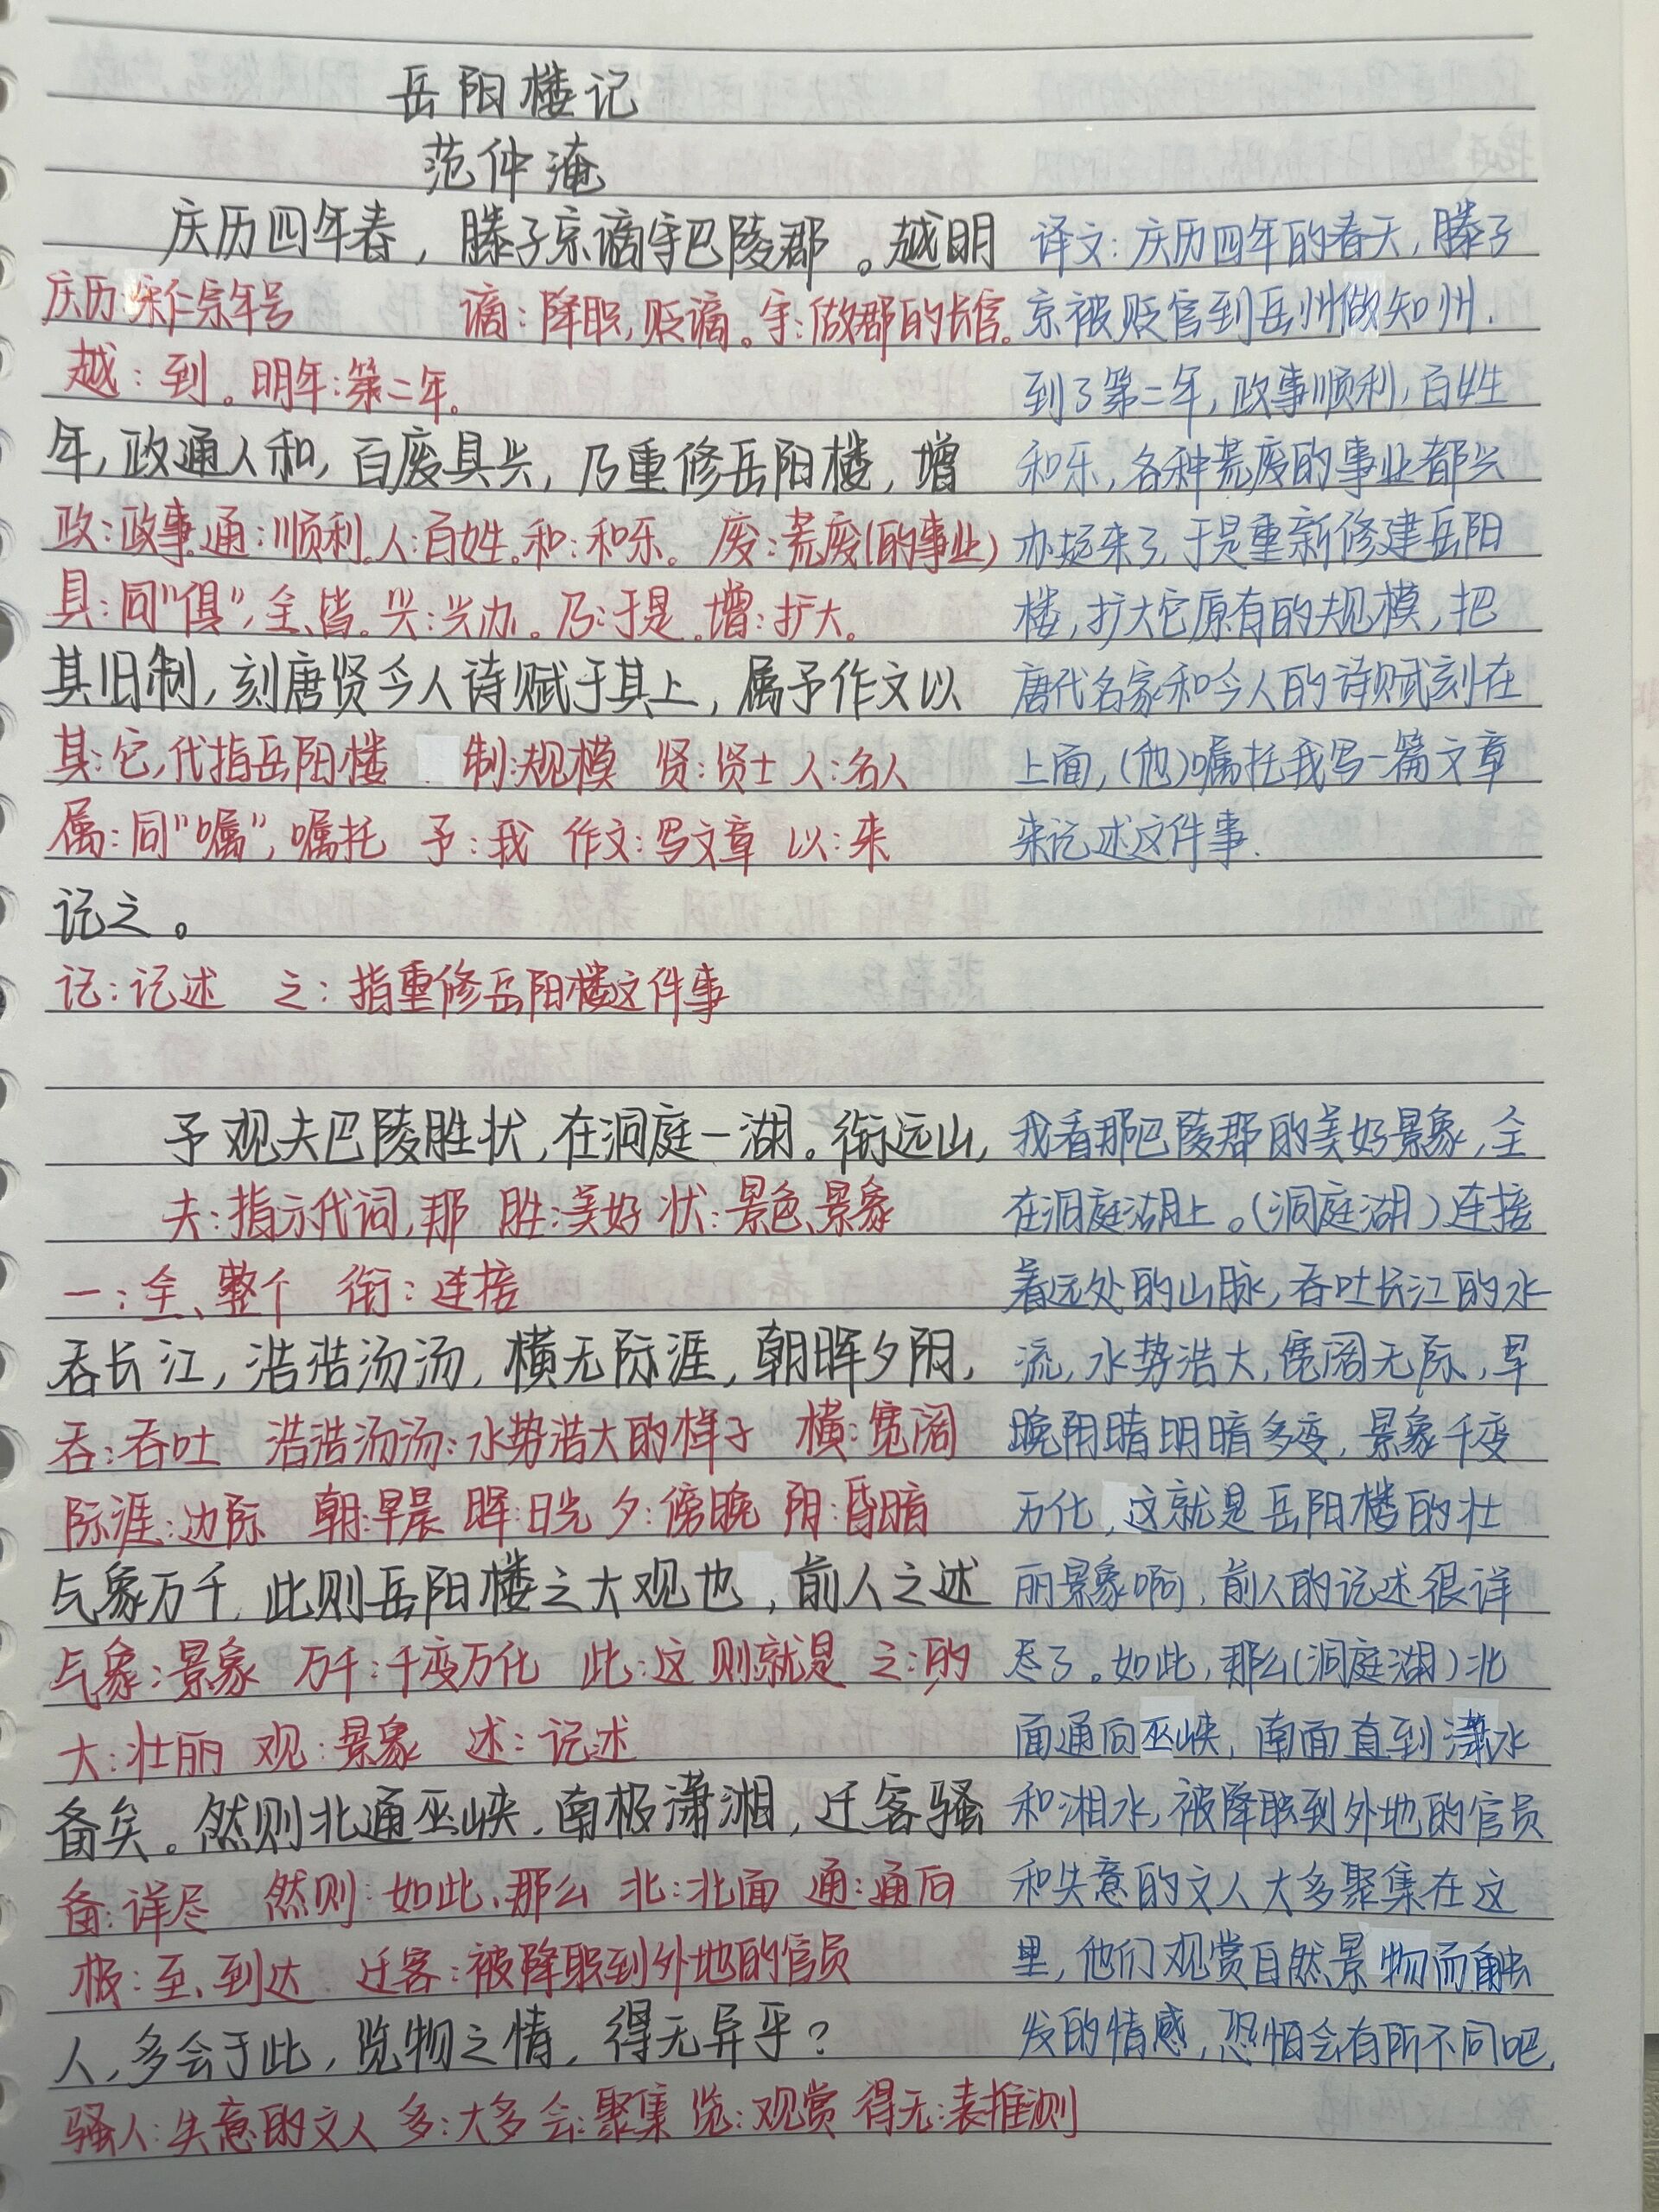 岳阳楼记
范仲淹
庆历四年春，滕子京谪守巴陵郡。越明 译文：庆历四年的春天，滕子
庆历：宋仁宗年号 谪：降职，贬谪。守：做郡的长官。 京被贬官到岳州做知州.
越：到。明年：第二年。 到了第二年，政事顺利，百姓
年，政通人和，百废具兴，乃重修岳阳楼，增 和乐，各种荒废的事业都兴
政：政事.通：顺利.人：百姓.和：和乐。废：荒废（的事业） 办起来了，于是重新修建岳阳
具：同“俱”，全、皆。兴：兴办。乃：于是.增：扩大。 楼，扩大它原有的规模，把
其旧制，刻唐贤今人诗赋于其上，属予作文以 唐代名家和今人的诗赋刻在
其：它，代指岳阳楼 制：规模 贤：贤士 人：名人 上面，（他）嘱托我写一篇文章
属：同“嘱”，嘱托 予：我 作文：写文章 以：来 来记述这件事.
记之。
记：记述 之：指重修岳阳楼这件事
予观夫巴陵胜状，在洞庭一湖。衔远山， 我看那巴陵郡的美好景象，全
夫：指示代词，那 胜：美好 状：景色、景象 在洞庭湖上。（洞庭湖）连接
一：全、整个 衔：连接 着远处的山脉，吞吐长江的水
吞长江，浩浩汤汤，横无际涯，朝晖夕阴， 流，水势浩大，宽阔无际，早
吞：吞吐 浩浩汤汤：水势浩大的样子 横：宽阔 晚阴晴明暗多变，景象千变
际涯：边际 朝：早晨 晖：日光 夕：傍晚 阴：昏暗 万化，这就是岳阳楼的壮
气象万千.此则岳阳楼之大观也，前人之述 丽景象啊，前人的记述很详
气象：景象 万千：千变万化 此：这 则：就是 之：的 尽了。如此，那么（洞庭湖）北
大：壮丽 观：景象 述：记述 面通向巫峡，南面直到潇水
备矣。然则北通巫峡，南极潇湘，迁客骚 和湘水，被降职到外地的官员
备：详尽 然则：如此、那么 北：北面 通：通向 和失意的文人大多聚集在这
极：至、到达 迁客：被降职到外地的官员 里，他们观赏自然景物而触
人，多会于此，览物之情，得无异乎？ 发的情感，恐怕会有所不同吧.
骚人：失意的文人 多：大多 会：聚集 览：观赏 得无：表推测